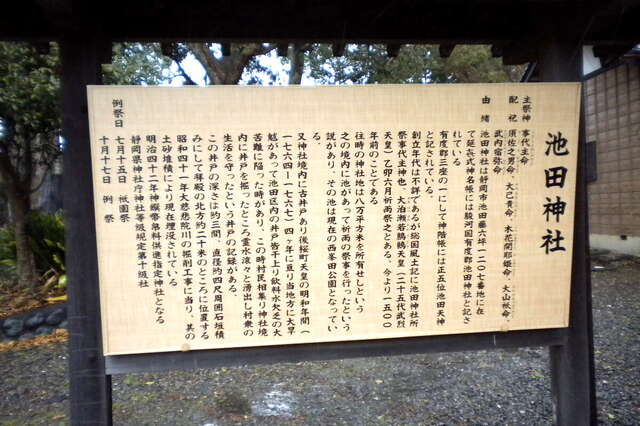 池田神社
主祭神　事代主命
配祀　須佐之男命、大己貴命、木花開耶姫命、大山祇命、
武内宿弥命
由緒　池田神社は静岡市池田藤六坪一二〇七番地に在
て延㐂式神名帳には駿河国有度郡池田神社と記さ
れている
有度郡三座の一にして神階帳には正五位池田天神
と記されている。
創立年代は不詳であるが総国風土記に池田神社所
祭事代主神也、大泊瀬若鷦鷯天皇（二十五代武烈
天皇）乙卯六月祈雨祭之とある、今より一五〇〇
年前のことである
往時の神地は八万平方米を所有せしという
之の境内に池があって祈雨の祭事を行ったという
説があり、その池は現在の西峯田公園となってい
る。
又神社境内に古井戸あり後桜町天皇の明和年間（
一七六四ー一七六七）四ヶ年に亘り当地方に大旱
魃があって池田区内の井戸皆干上り飲料水欠乏の大
苦難に陥った時があり、この時村民相集り神社境
内に井戸を掘ったところ霊水滾々と湧出し村衆の
生活を守ったという井戸の記録がある
この井戸の深さは約三間、直径約四尺周囲石垣積
みにして拝殿の北方約二十米のところに位置する
昭和四十一年大慈悲院川の掘削工事に当り、其の
土砂堆積により現在埋没されている
明治四十二年神饌幣帛料供進指定神社となる
静岡県神社庁神社等級規定第十級社
例祭日　七月十五日　祇園祭
十月十七日　例祭